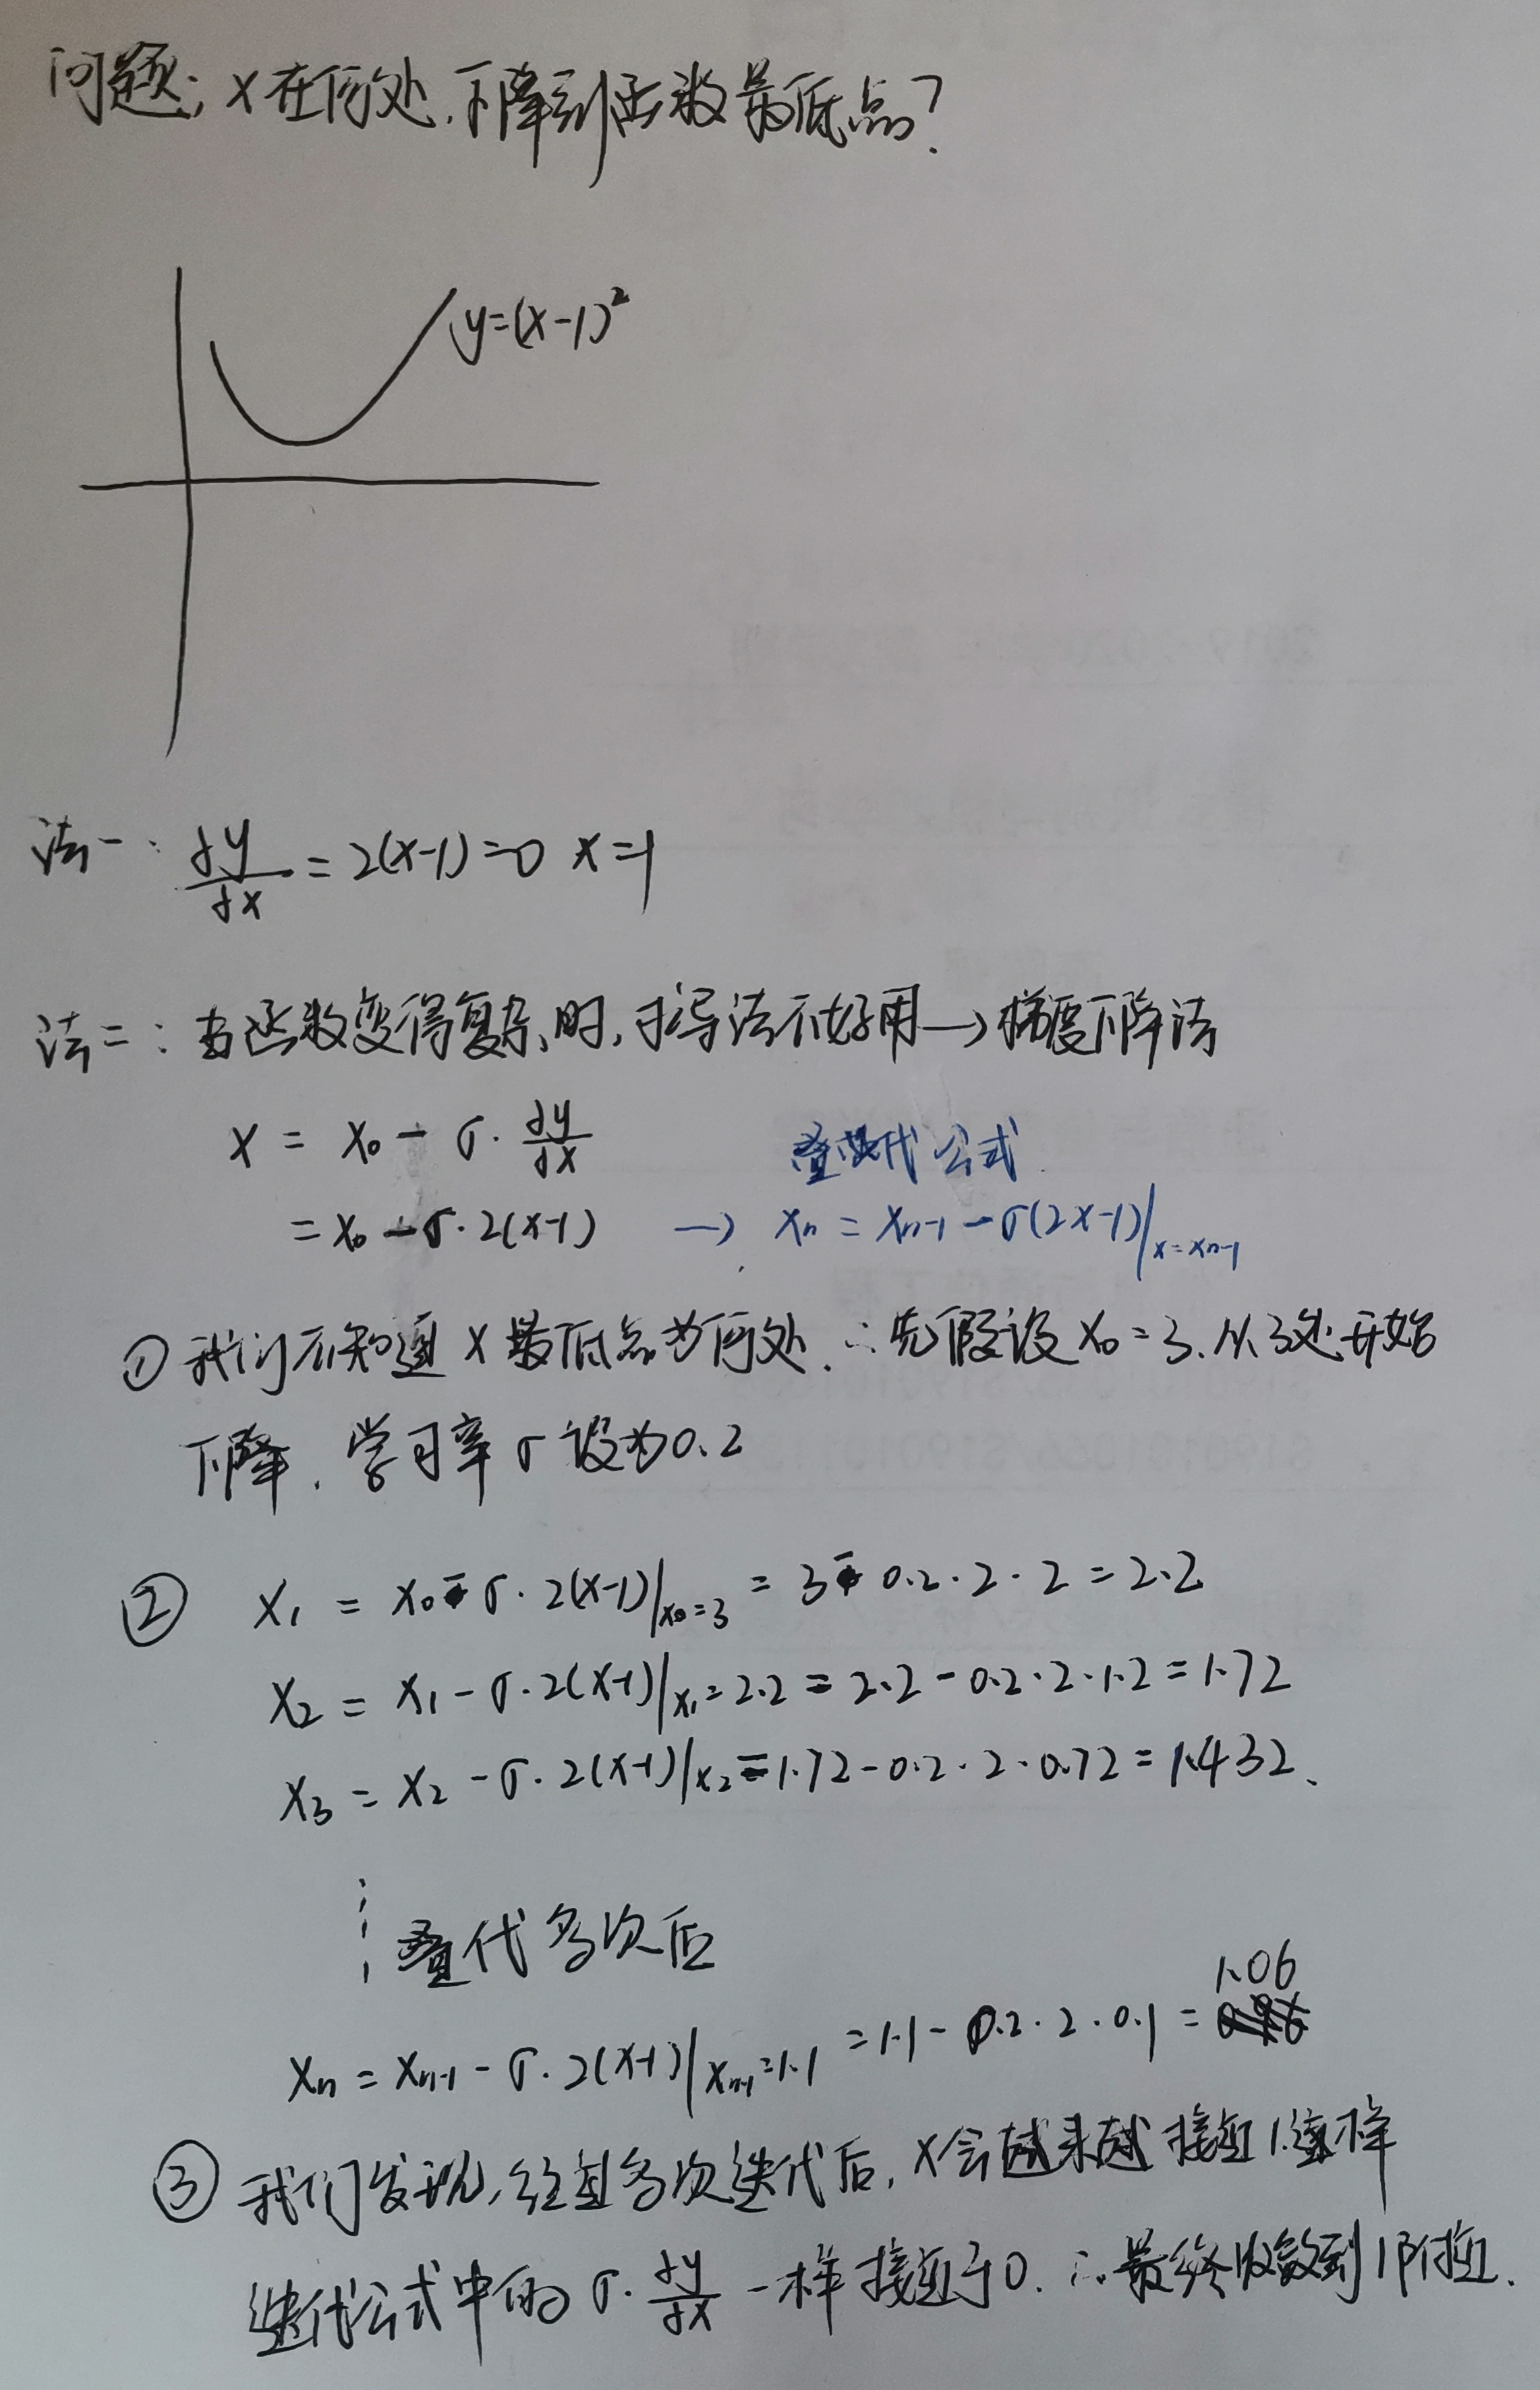 问题：x在何处，下降到函数最低点？
y=(x-1)²
法一：dy/dx = 2(x-1)=0 x=1
法二：当函数变得复杂时，求导法不好用→梯度下降法
x = x₀ - σ·dy/dx
迭代公式
= x₀ - σ·2(x-1) → xₙ = xₙ₋₁ - σ(2x-1)|x=xₙ₋₁
① 我们不知道x最低点为何处，∴先假设x₀=3，从3处开始
下降，学习率σ设为0.2
② x₁ = x₀ - σ·2(x-1)|x₀=3 = 3 - 0.2·2·2 = 2.2
x₂ = x₁ - σ·2(x-1)|x₁=2.2 = 2.2 - 0.2·2·1.2 = 1.72
x₃ = x₂ - σ·2(x-1)|x₂ = 1.72 - 0.2·2·0.72 = 1.432
⋮ 叠代多次后
xₙ = xₙ₋₁ - σ·2(x-1)|xₙ₋₁=1.1 = 1.1 - 0.2·2·0.1 = 1.06
③ 我们发现，经过多次迭代后，x会越来越接近1，这样
迭代公式中的σ·dy/dx一样接近于0．∴最终收敛到1附近．